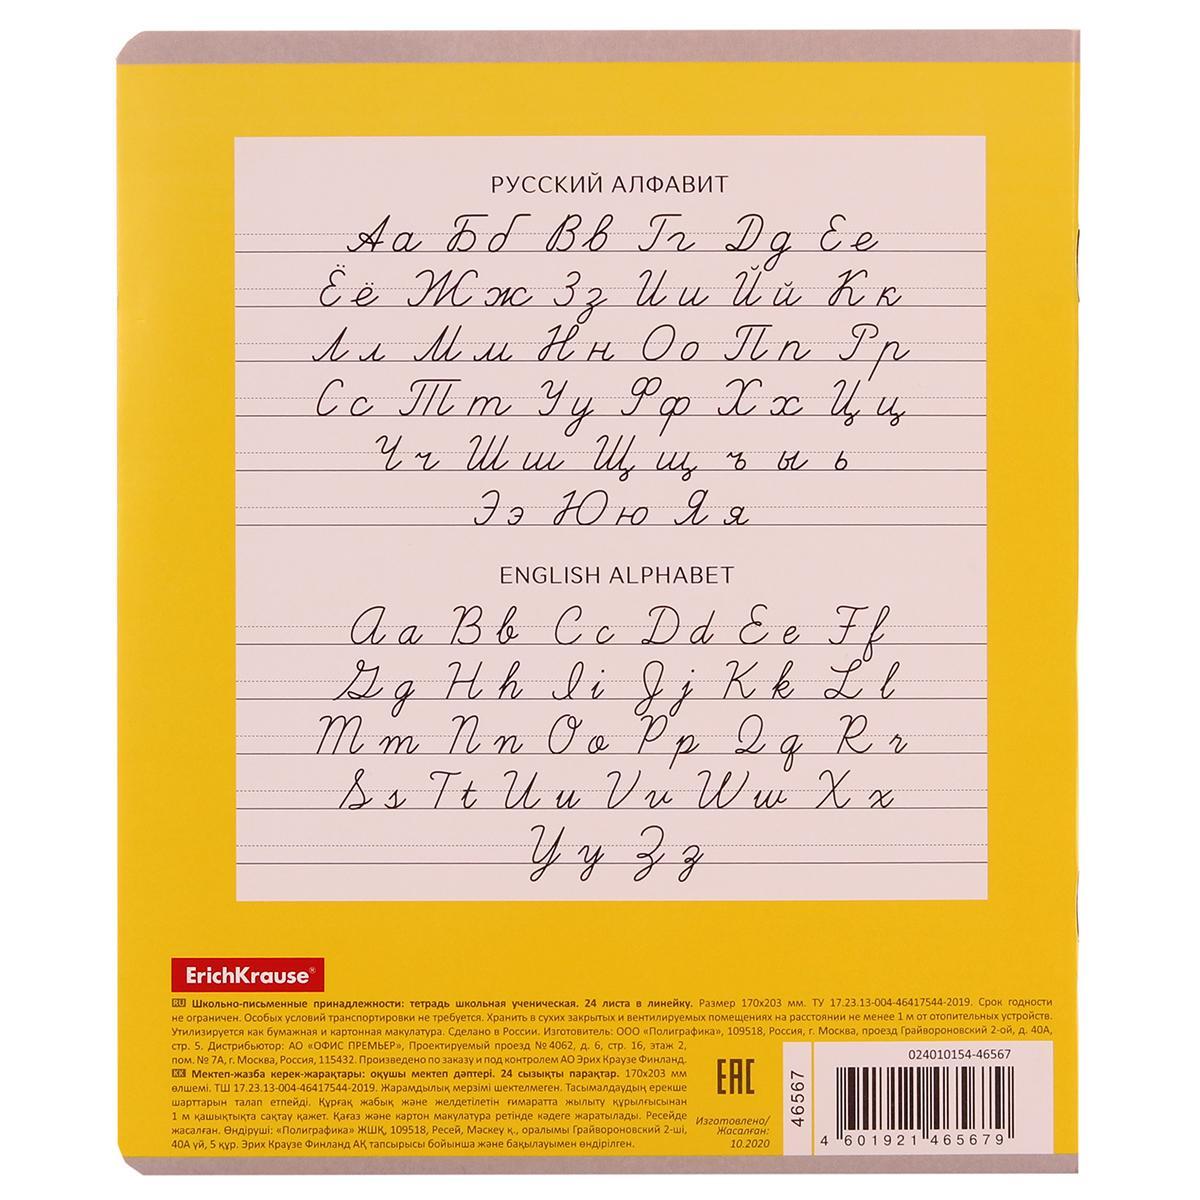 РУССКИЙ АЛФАВИТ
Аа Бб Вв Гг Дд Ее
Ёё Жж Зз Ии Йй Кк
Лл Мм Нн Оо Пп Рр
Сс Тт Уу Фф Хх Цц
Чч Шш Щщ ъ ы ь
Ээ Юю Яя
ENGLISH ALPHABET
Aa Bb Cc Dd Ee Ff
Gg Hh Ii Jj Kk Ll
Mm Nn Oo Pp Qq Rr
Ss Tt Uu Vv Ww Xx
Yy Zz
ErichKrause®
RU Школьно-письменные принадлежности: тетрадь школьная ученическая. 24 листа в линейку. Размер 170х203 мм. ТУ 17.23.13-004-46417544-2019. Срок годности
не ограничен. Особых условий транспортировки не требуется. Хранить в сухих закрытых и вентилируемых помещениях на расстоянии не менее 1 м от отопительных устройств.
Утилизируется как бумажная и картонная макулатура. Сделано в России. Изготовитель: ООО «Полиграфика», 109518, Россия, г. Москва, проезд Грайвороновский 2-ой, д. 40А,
стр. 5. Дистрибьютор: АО «ОФИС ПРЕМЬЕР», Проектируемый проезд №4062, д. 6, стр. 16, этаж 2,
пом. № 7А, г. Москва, Россия, 115432. Произведено по заказу и под контролем АО Эрих Краузе Финланд.
KK Мектеп-жазба керек-жарақтары: оқушы мектеп дәптері. 24 сызықты парақтар. 170х203 мм
өлшемі. ТШ 17.23.13-004-46417544-2019. Жарамдылық мерзімі шектелмеген. Тасымалдаудың ерекше
шарттарын талап етпейді. Құрғақ жабық және желдетілетін ғимаратта жылыту құрылғысынан
1 м қашықтықта сақтау қажет. Қағаз және картон макулатура ретінде кәдеге жаратылады. Ресейде
жасалған. Өндіруші: «Полиграфика» ЖШҚ, 109518, Ресей, Мәскеу қ., оралымы Грайвороновский 2-ші,
40А үй, 5 құр. Эрих Краузе Финланд АҚ тапсырысы бойынша және бақылауымен өндірілген.
EAC
Изготовлено/
Жасалған:
10.2020
46567
024010154-46567
4 601921 465679